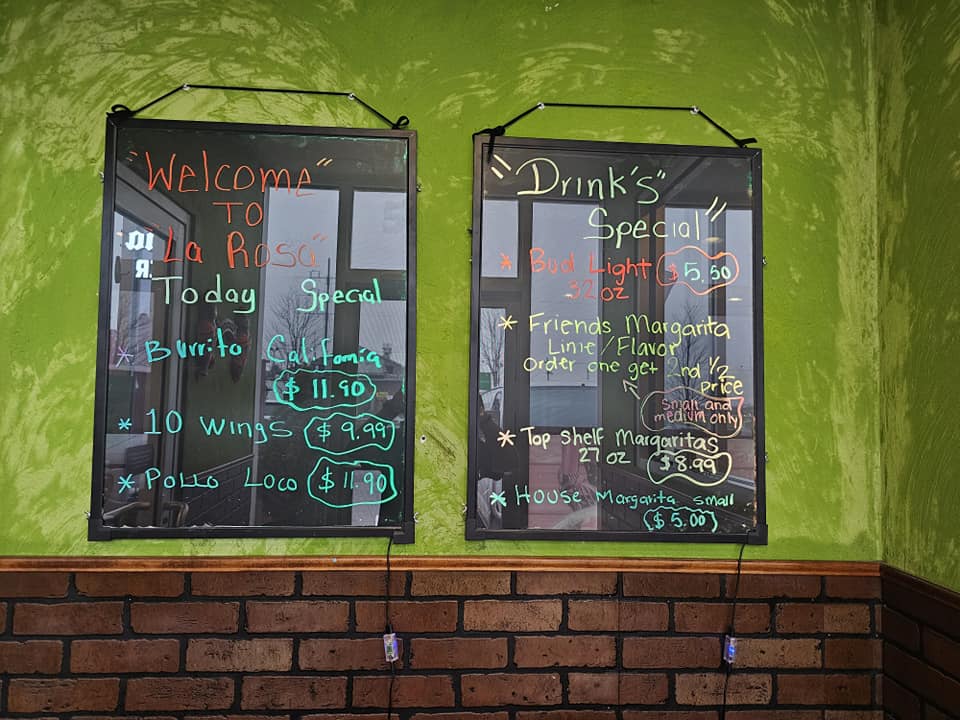 "Welcome"
TO
La Rosa"
Today Special
* Burrito California
$ 11.90
* 10 Wings $ 9.99
* Pollo Loco $ 11.90
"Drink's"
Special"
* Bud Light $5.50
32oz
* Friends Margarita
Lime/Flavor
Order one get 2nd 1/2
Price
Small and
medium only
* Top Shelf Margaritas
27 oz $8.99
* House Margarita small
$5.00